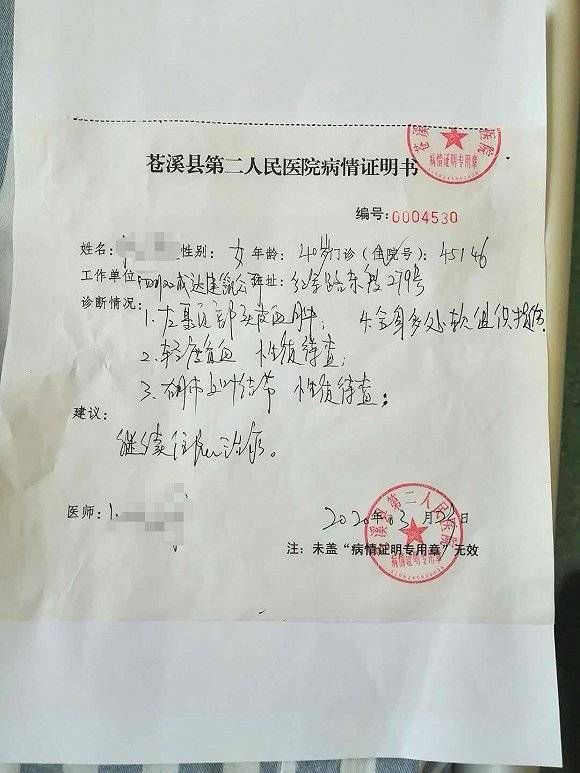 苍溪县第二人民医院病情证明书
病情证明专用章
编号:0004530
姓名: 性别: 女 年龄: 40岁 门诊(住院号): 45146
工作单位: 四川 成达建筑公 住址: 红军路东段279号
诊断情况: 1. 左 部头皮血肿; 4. 全身多处软组织挫伤
2. 轻度贫血 性质待查;
3. 右肺 叶结节 性质待查;
建议:
继续住院治疗。
医师:
2020年03月 日
苍溪县第二人民医院
病情证明专用章
注: 未盖“病情证明专用章”无效